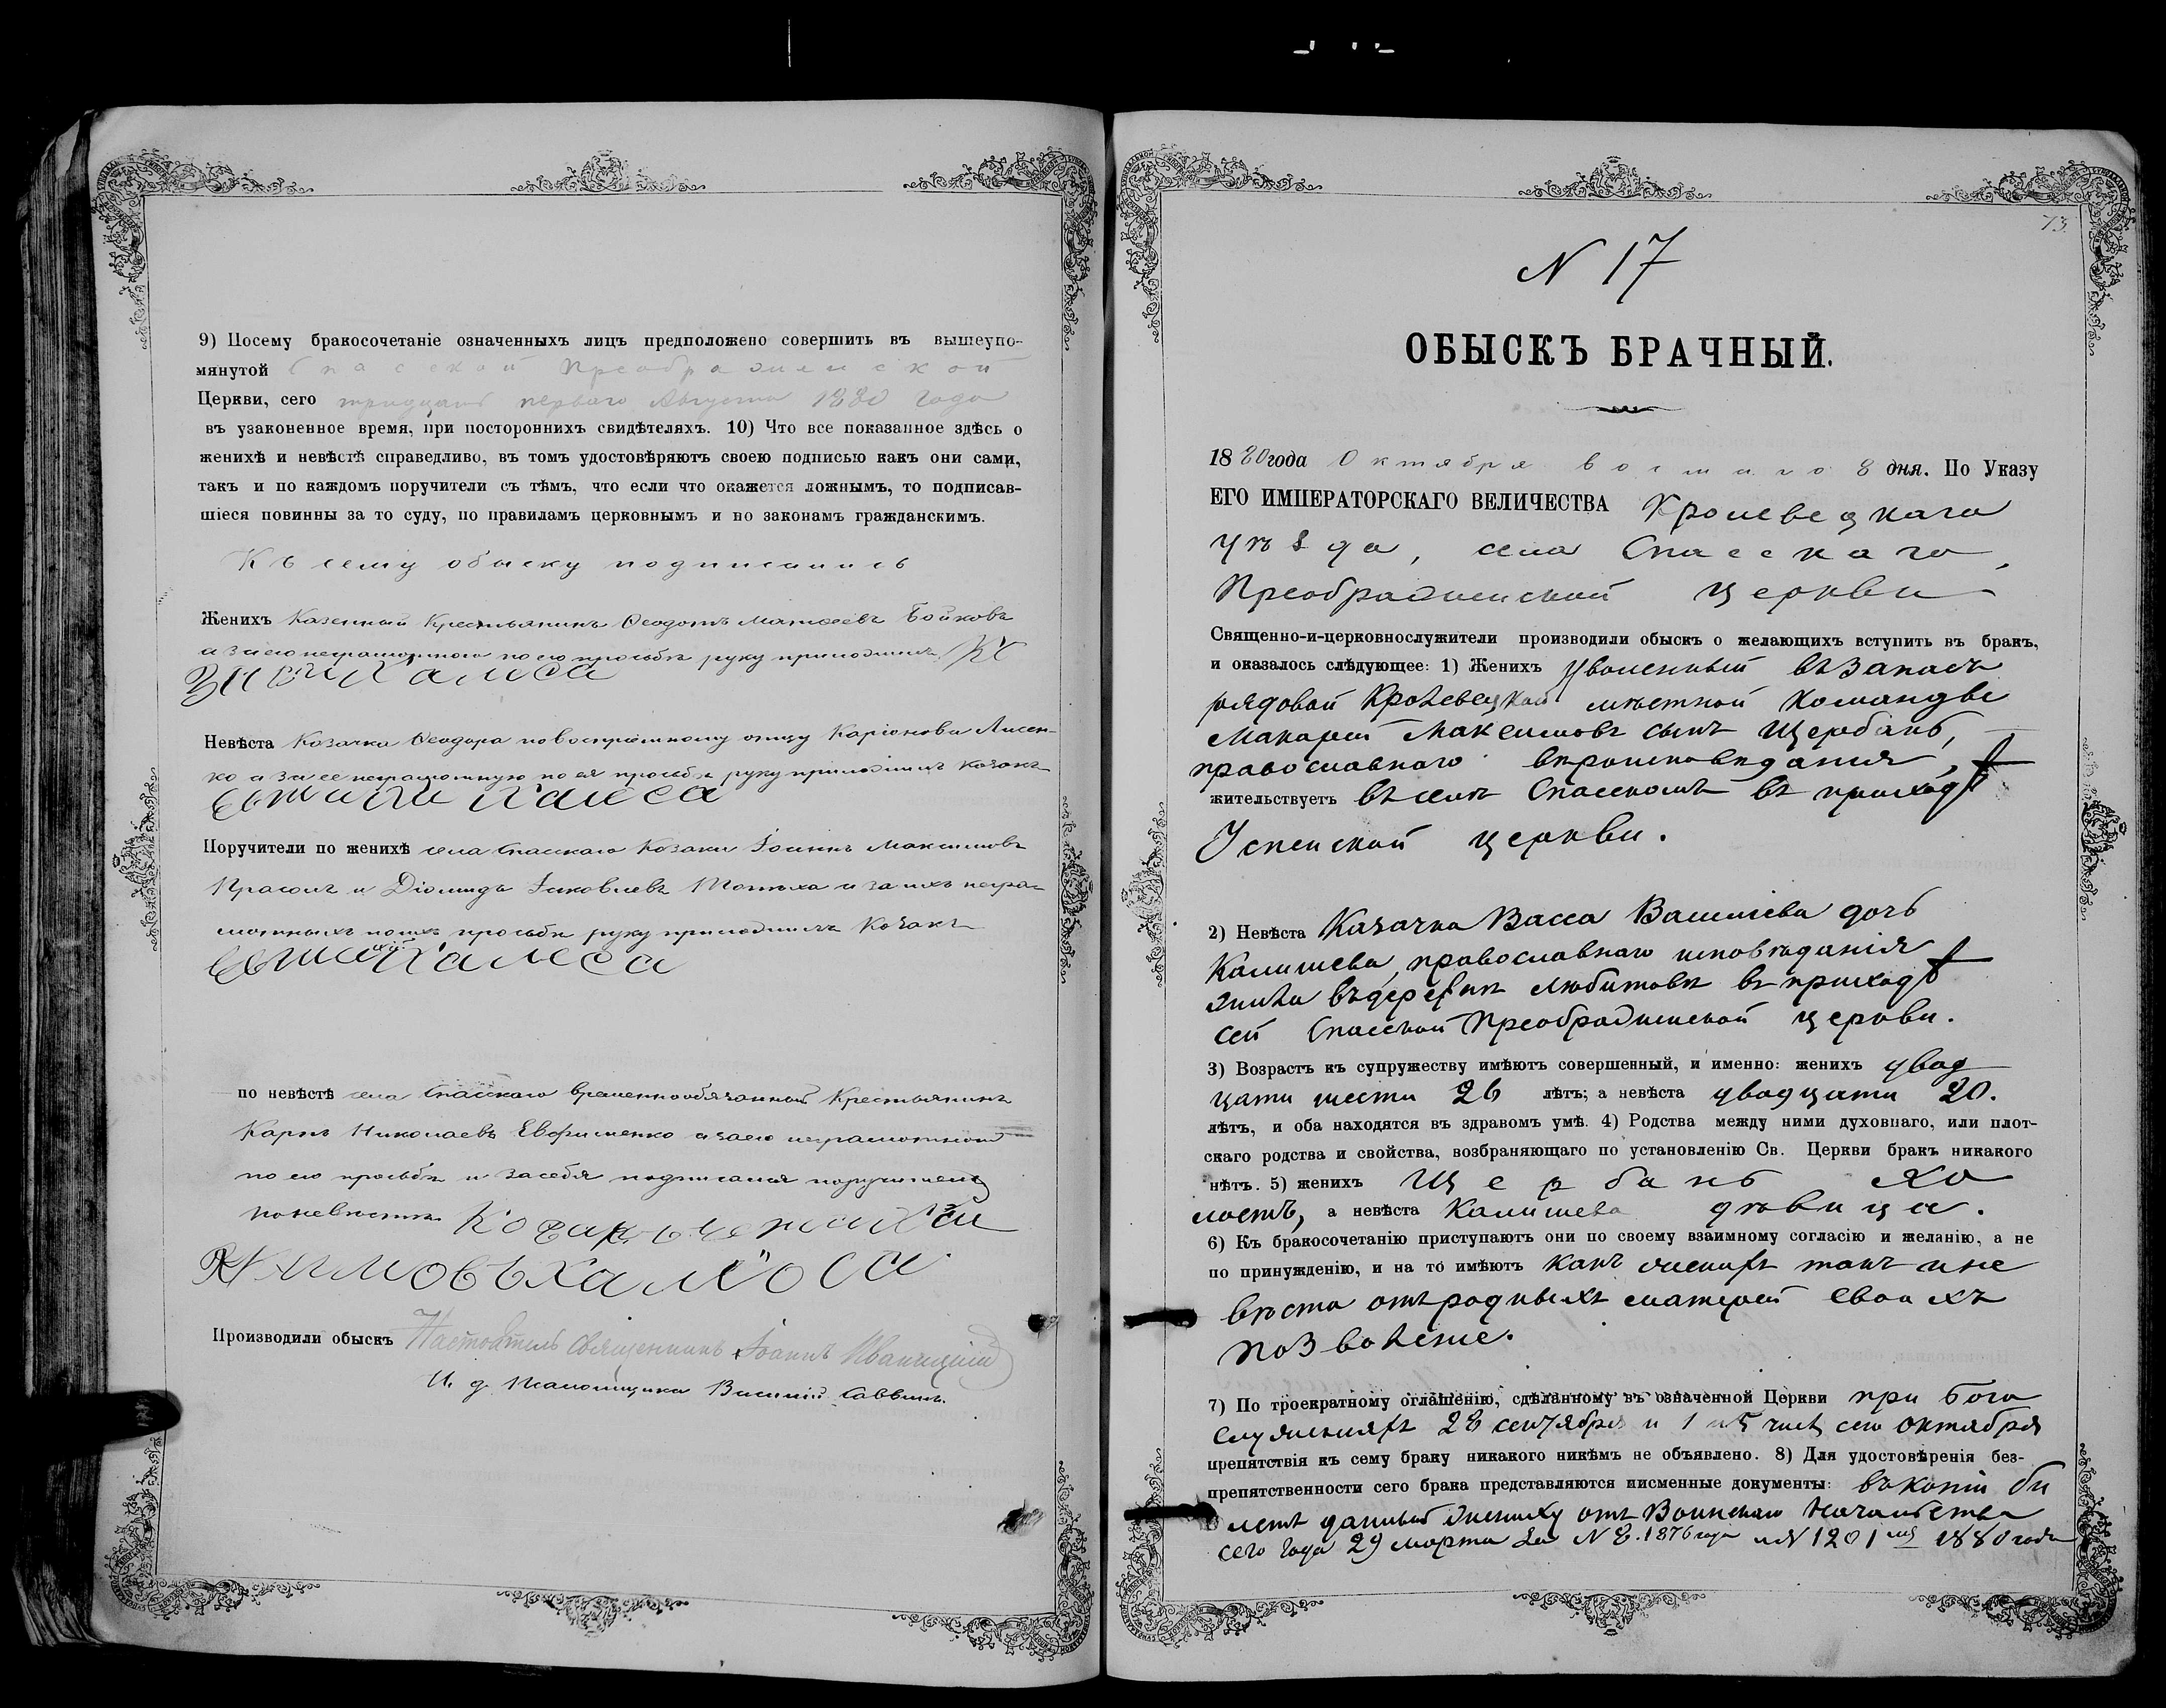 9) Посему бракосочетаніе означенныхъ лицъ предположено совершить въ вышеупо-
мянутой Спасской Преображенской
Церкви, сего тридцать перваго Августа 1880 года
въ узаконенное время, при постороннихъ свидѣтеляхъ. 10) Что все показанное здѣсь о
женихѣ и невѣстѣ справедливо, въ томъ удостовѣряютъ своею подписью какъ они сами,
такъ и по каждомъ поручители съ тѣмъ, что если что окажется ложнымъ, то подписав-
шіеся повинны за то суду, по правиламъ церковнымъ и по законамъ гражданскимъ.
Къ сему обыску подписались
Женихъ Казенный Крестьянинъ Ѳеодотъ Матѳеевъ Бойковъ
а за его неграмотного по его просьбѣ руку приложилъ
Невѣста Козачка Ѳеодора по воспріемному отцу Каріонова Лисен-
ко а за ее неграмотную по ея просьбѣ руку приложилъ козакъ
Поручители по женихѣ села Спасскаго Козаки Іоаннъ Максимовъ
и Діомидъ Іаковлевъ и за ихъ негра-
мотныхъ по ихъ просьбѣ руку приложилъ Козакъ
по невѣстѣ села Спасскаго временнообязанный Крестьянинъ
Карпъ Николаевъ Евфименко а за его неграмотного
по его просьбѣ и за себя подписался поручитель
по невѣстѣ Козакъ
Производили обыскъ Настоятель Священникъ Іоаннъ
И. д. Псаломщика Василій Саввинъ.
73
N 17
ОБЫСКЪ БРАЧНЫЙ.
1880 года Октября восмаго 8 дня. По Указу
ЕГО ИМПЕРАТОРСКАГО ВЕЛИЧЕСТВА Кролевецкаго
уѣзда, села Спасскаго,
Преображенской церкви
Священно-и-церковнослужители производили обыскъ о желающихъ вступить въ бракъ,
и оказалось слѣдующее: 1) Женихъ Уволенный въ запасъ
рядовой Кролевецкой мѣстной Команды
Макарій Максимовъ сынъ Щербань,
православнаго вѣроисповѣданія,
жительствуетъ въ селѣ Спасскомъ въ приходѣ
Успенской церкви.
2) Невѣста Казачка Васса Василіева дочь
Калишева, православнаго исповѣданія
жила въ деревнѣ Любитовѣ въ приходѣ
сей Спасской Преображенской церкви.
3) Возрастъ къ супружеству имѣютъ совершенный, и именно: женихъ двад
цати шести 26 лѣтъ; а невѣста двадцати 20.
лѣтъ, и оба находятся въ здравомъ умѣ. 4) Родства между ними духовнаго, или плот-
скаго родства и свойства, возбраняющаго по установленію Св. Церкви бракъ никакого
нѣтъ. 5) женихъ Щербань хо
лостъ, а невѣста Калишева дѣвица.
6) Къ бракосочетанію приступаютъ они по своему взаимному согласію и желанію, а не
по принужденію, и на то имѣютъ какъ женихъ такъ и не
вѣста отъ родныхъ матерей своихъ
позволеніе.
7) По троекратному оглашенію, сдѣланному въ означенной Церкви при бого
служеніяхъ 28 сентября и 1 и 5 числ сего октября
препятствія къ сему браку никакого никѣмъ не объявлено. 8) Для удостовѣренія без-
препятственности сего брака представляются письменные документы: въ копіи би
летъ данный жениху отъ Воинскаго Начальства
сего года 29 марта за N 8. 1876 года и N 1201 1880 года